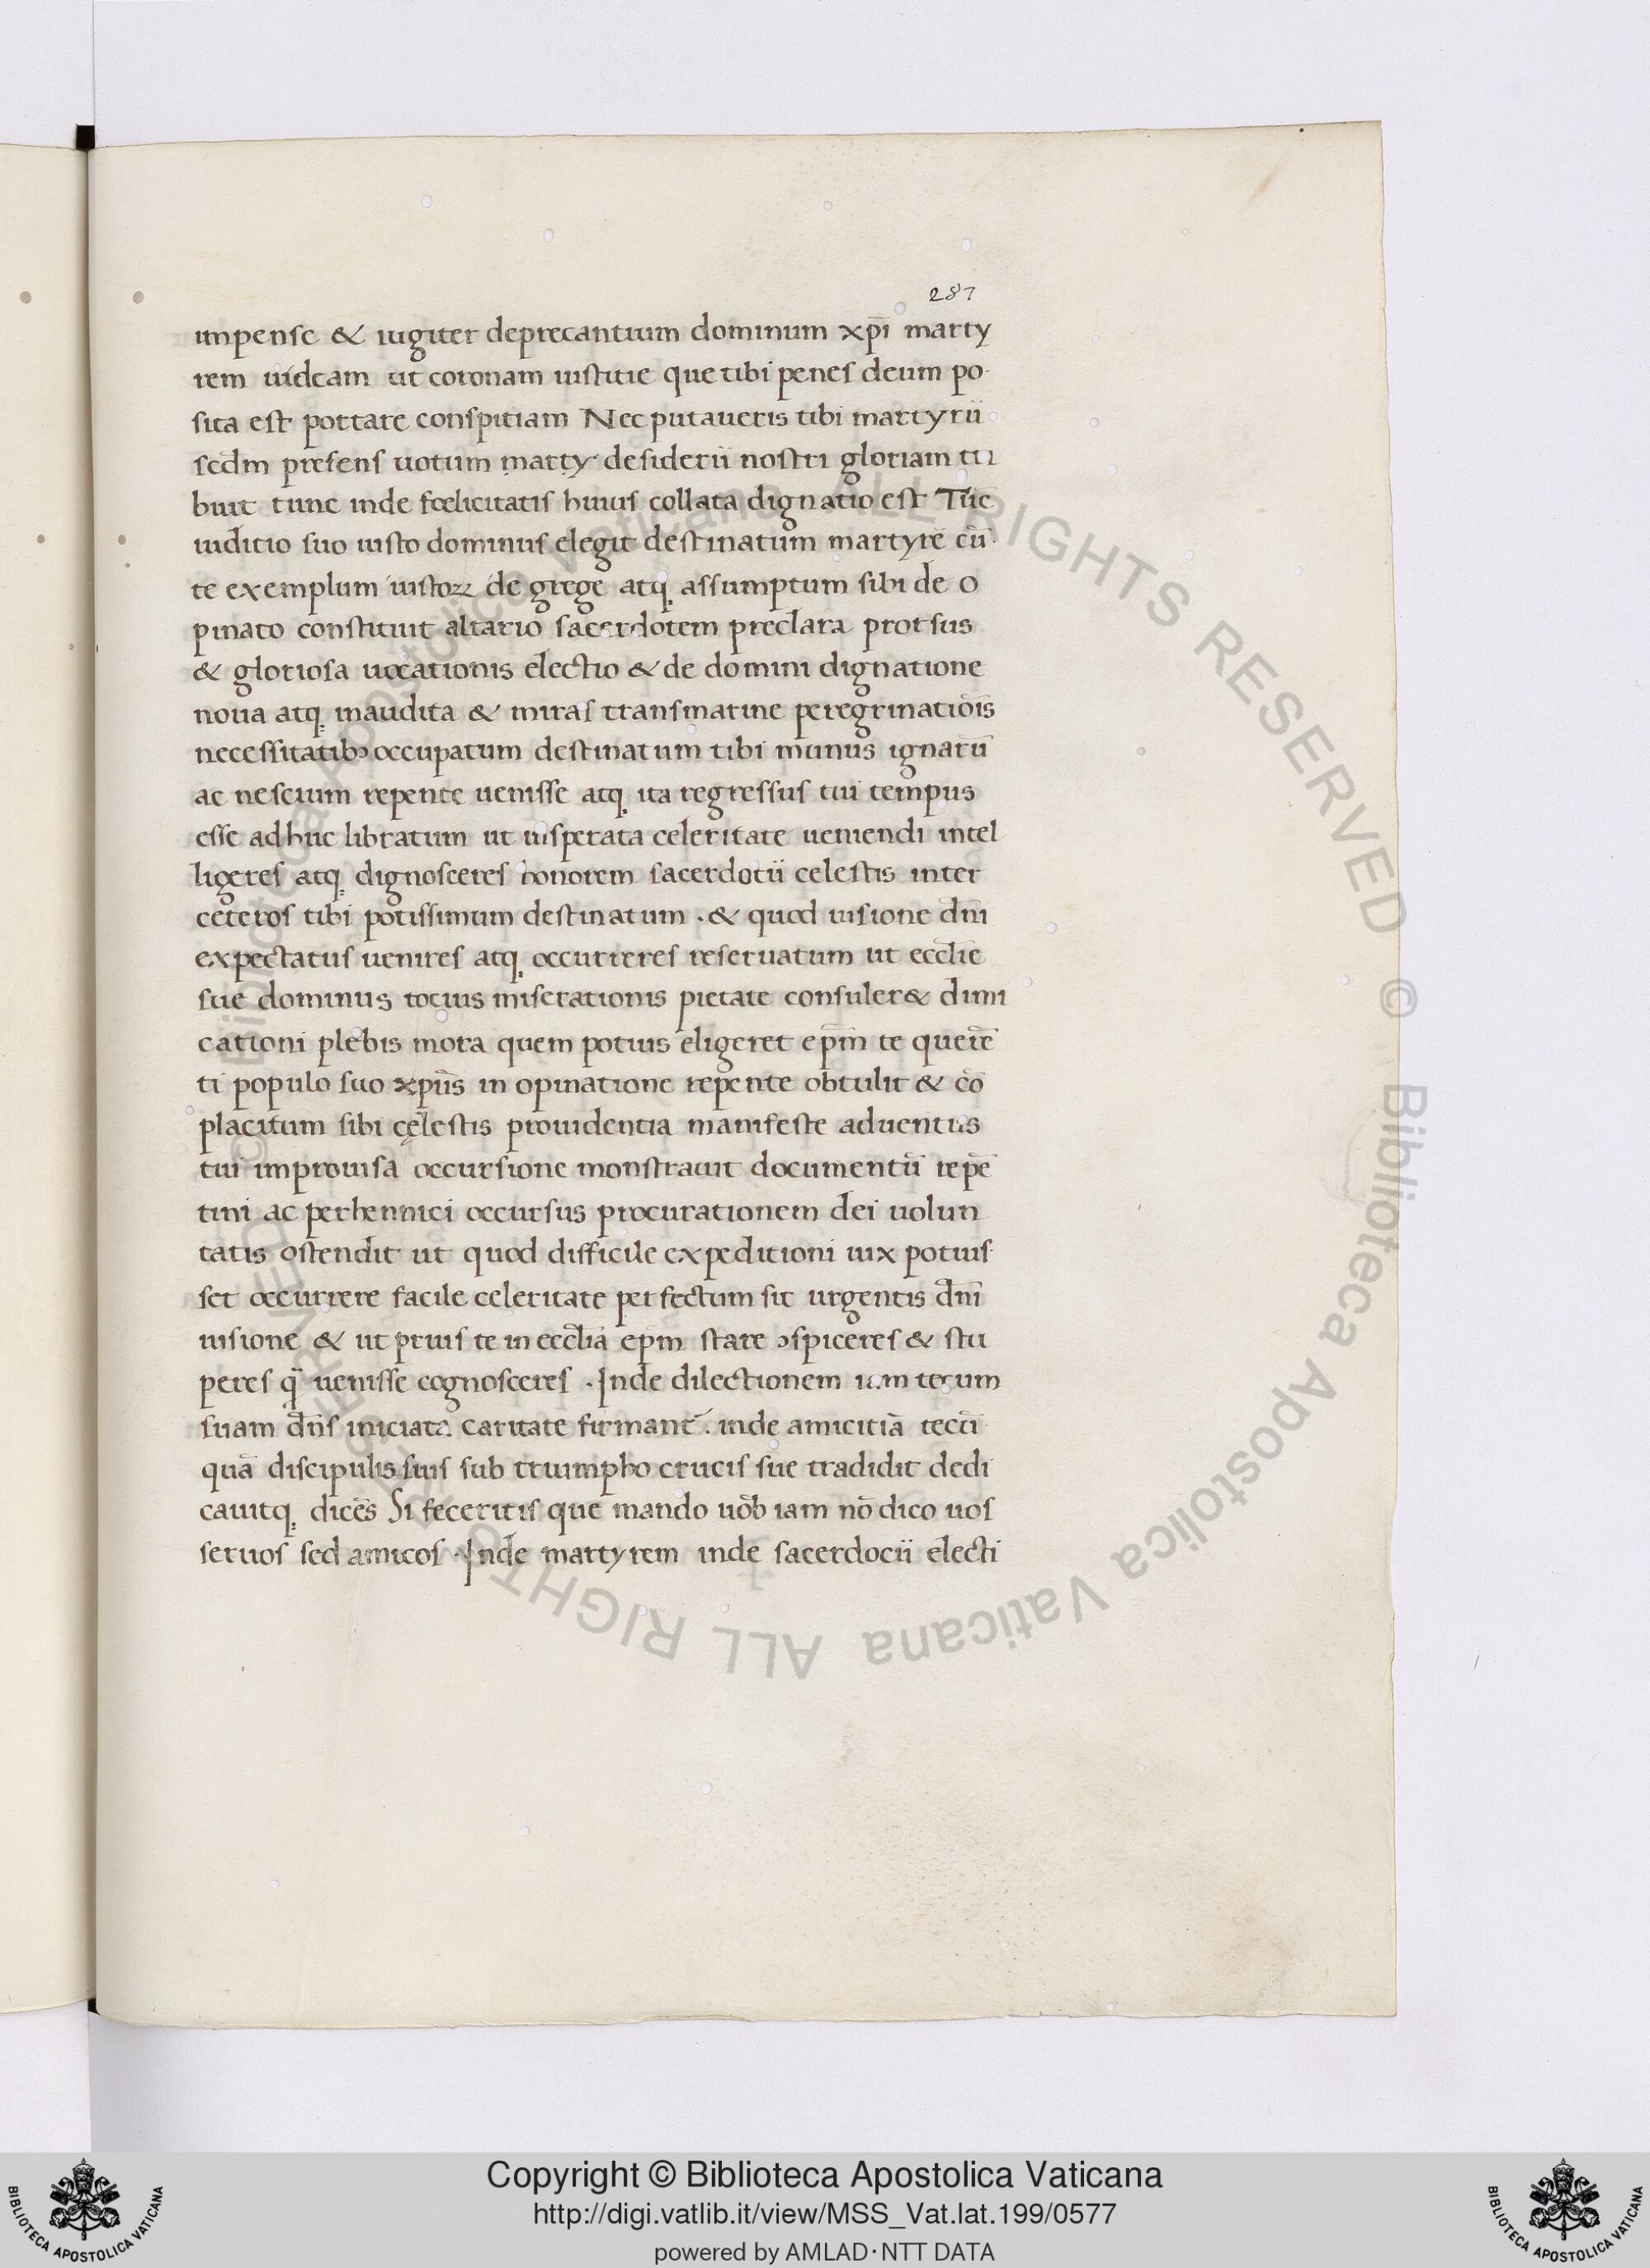 287
impense & iugiter deprecantium dominum xp̄i marty
rem uideam ut coronam iustitie que tibi penes deum po
sita est portare conspitiam Nec putaueris tibi martyrii
secdm presens uotum marty desiderii nostri gloriam tri
buit tunc inde foelicitatis huius collata dignatio est Tūc
iuditio suo iusto dominus elegit destinatum martyrē cū
te exemplum iustoꝝ de grege atq; assumptum sibi de o
pinato constituit altario sacerdotem preclara prorsus
& gloriosa uocationis electio & de domini dignatione
noua atq; inaudita & miras transmarine peregrinatiōis
necessitatibꝰ occupatum destinatum tibi munus ignarū
ac nescium repente uenisse atq; ita regressus tui tempus
esse adhuc libratum ut insperata celeritate ueniendi intel
ligeres atq; dignosceres honorem sacerdotii celestis inter
ceteros tibi potissimum destinatum · & quod uisione dn̄i
expectatus uenires atq; occurreres reseruatum ut eccl̄ie
sue dominus tocius miserationis pietate consuler& dimi
cationi plebis mora quem potius eligeret ep̄m te querē
ti populo suo xp̄us in opinatione repente obtulit & cō
placitum sibi celestis prouidentia manifeste aduentus
tui improuisa occursione monstrauit documentū repē
tini ac perhennici occursus procurationem dei uolun
tatis ostendit ut quod difficile expeditioni uix potuis
set occurrere facile celeritate perfectum sit urgentis dn̄i
uisione & ut prius te in eccl̄ia ep̄m stare ꝯspiceres & stu
peres q̄ uenisse cognosceres · Inde dilectionem iam tecum
suam dn̄s iniciata caritate firmant̄ . inde amicitiā tecū
quā discipulis suis sub triumpho crucis sue tradidit dedi
cauitq; dicēs Si feceritis que mando uōb iam nō dico uos
seruos sed amicos · Inde martyrem inde sacerdocii electi
© Biblioteca Apostolica Vaticana ALL RIGHTS RESERVED
© Biblioteca Apostolica Vaticana ALL RIGHTS RESERVED
BIBLIOTECA APOSTOLICA VATICANA
Copyright © Biblioteca Apostolica Vaticana
http://digi.vatlib.it/view/MSS_Vat.lat.199/0577
powered by AMLAD·NTT DATA
BIBLIOTECA APOSTOLICA VATICANA